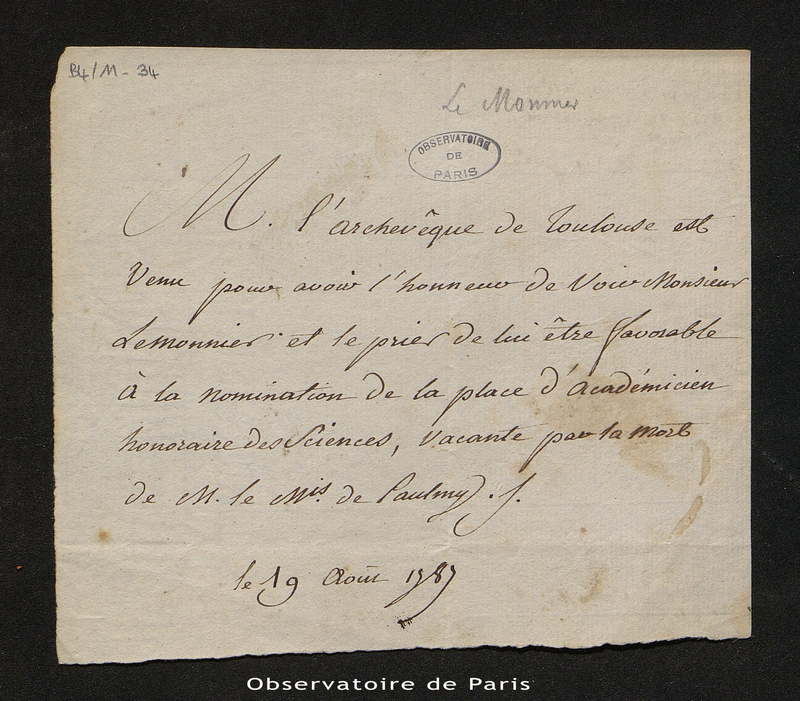 B4/M-34
Le Monnier
OBSERVATOIRE
DE
PARIS
M. l'archevêque de Toulouse est
Venu pour avoir l'honneur de Voir Monsieur
Lemonnier et le prier de lui être favorable
à la nomination de la place d'académicien
honoraire des Sciences, Vacante par la mort
de M. le Mis. de Paulmy.
le 19 Août 1787
Observatoire de Paris